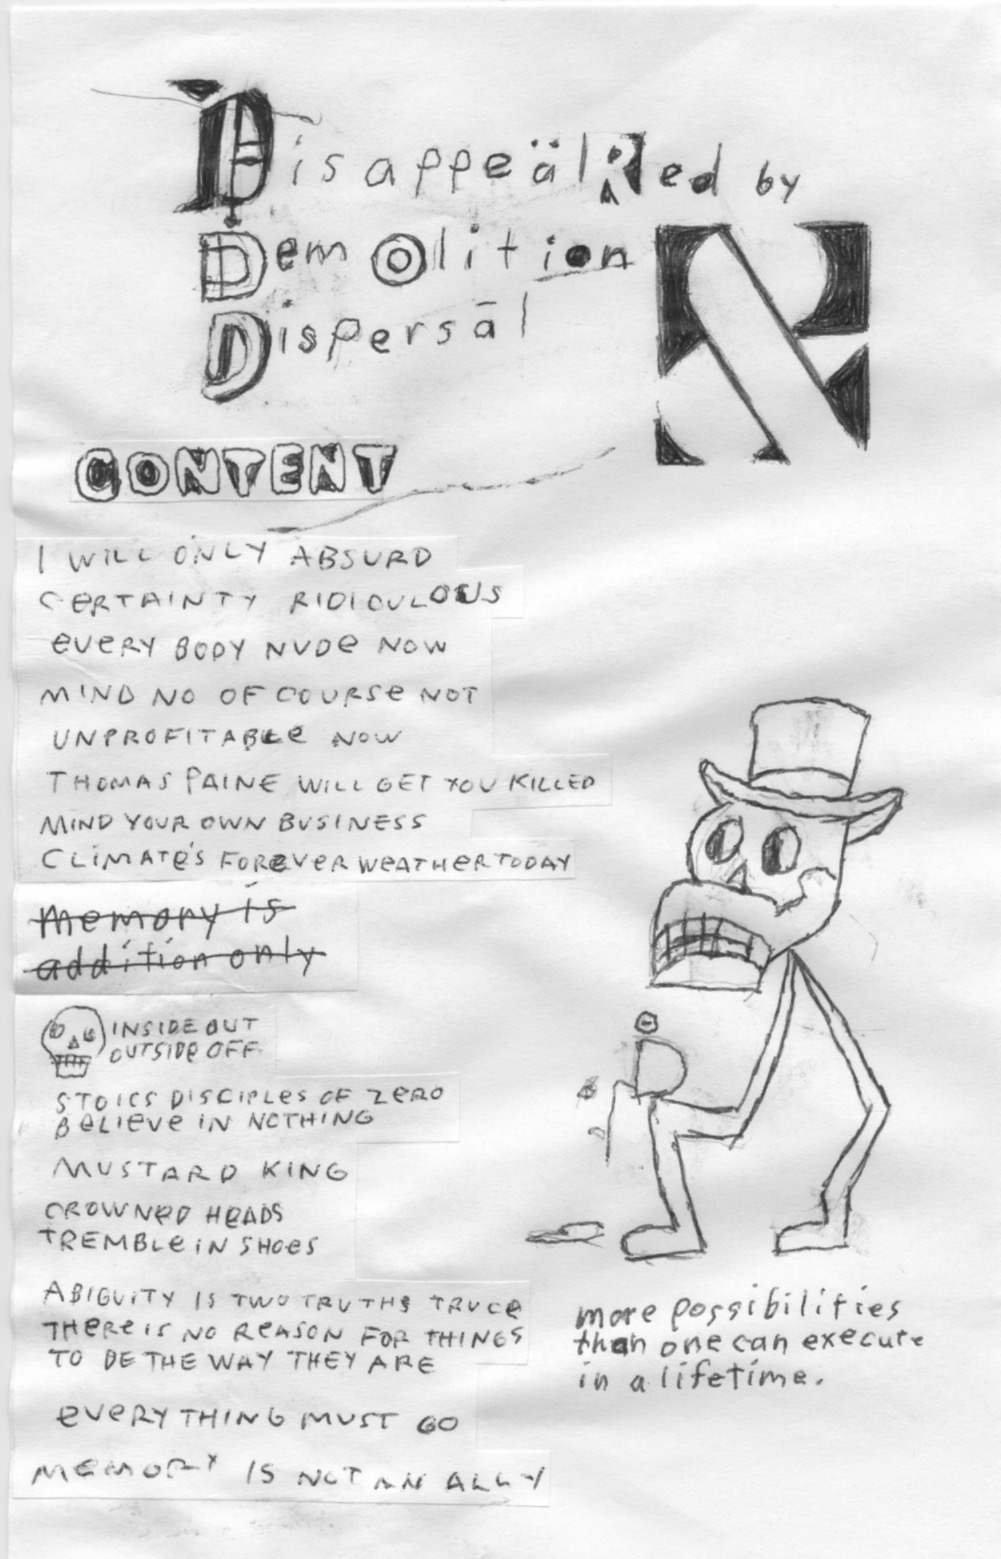 Disappeäl Red by
DemOlition
Dispersāl
CONTENT
I WILL ONLY ABSURD
CERTAINTY RIDICULOUS
EVERY BODY NUDE NOW
MIND NO OF COURSE NOT
UNPROFITABLE NOW
THOMAS PAINE WILL GET YOU KILLED
MIND YOUR OWN BUSINESS
CLIMATE'S FOREVER WEATHER TODAY
memory is
addition only
INSIDE OUT
OUTSIDE OFF
STOICS DISCIPLES OF ZERO
BELIEVE IN NOTHING
MUSTARD KING
CROWNED HEADS
TREMBLE IN SHOES
ABIGUITY IS TWO TRUTHS TRUCE
THERE IS NO REASON FOR THINGS
TO BE THE WAY THEY ARE
EVERYTHING MUST GO
MEMORY IS NOT AN ALLY
more possibilities
than one can execute
in a lifetime.